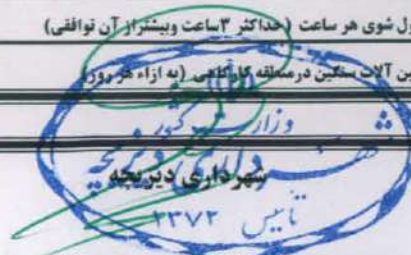 ول شوی هر ساعت (حداکثر ۳ساعت وبیشتراز آن توافقی)
ین آلات سنگین درمنطقه کارگاهی (به ازاء هر روز)
وزارت کشور
شهرداری دیزیچه
شهرداری دیزیچه
تاسیس ۱۳۷۲